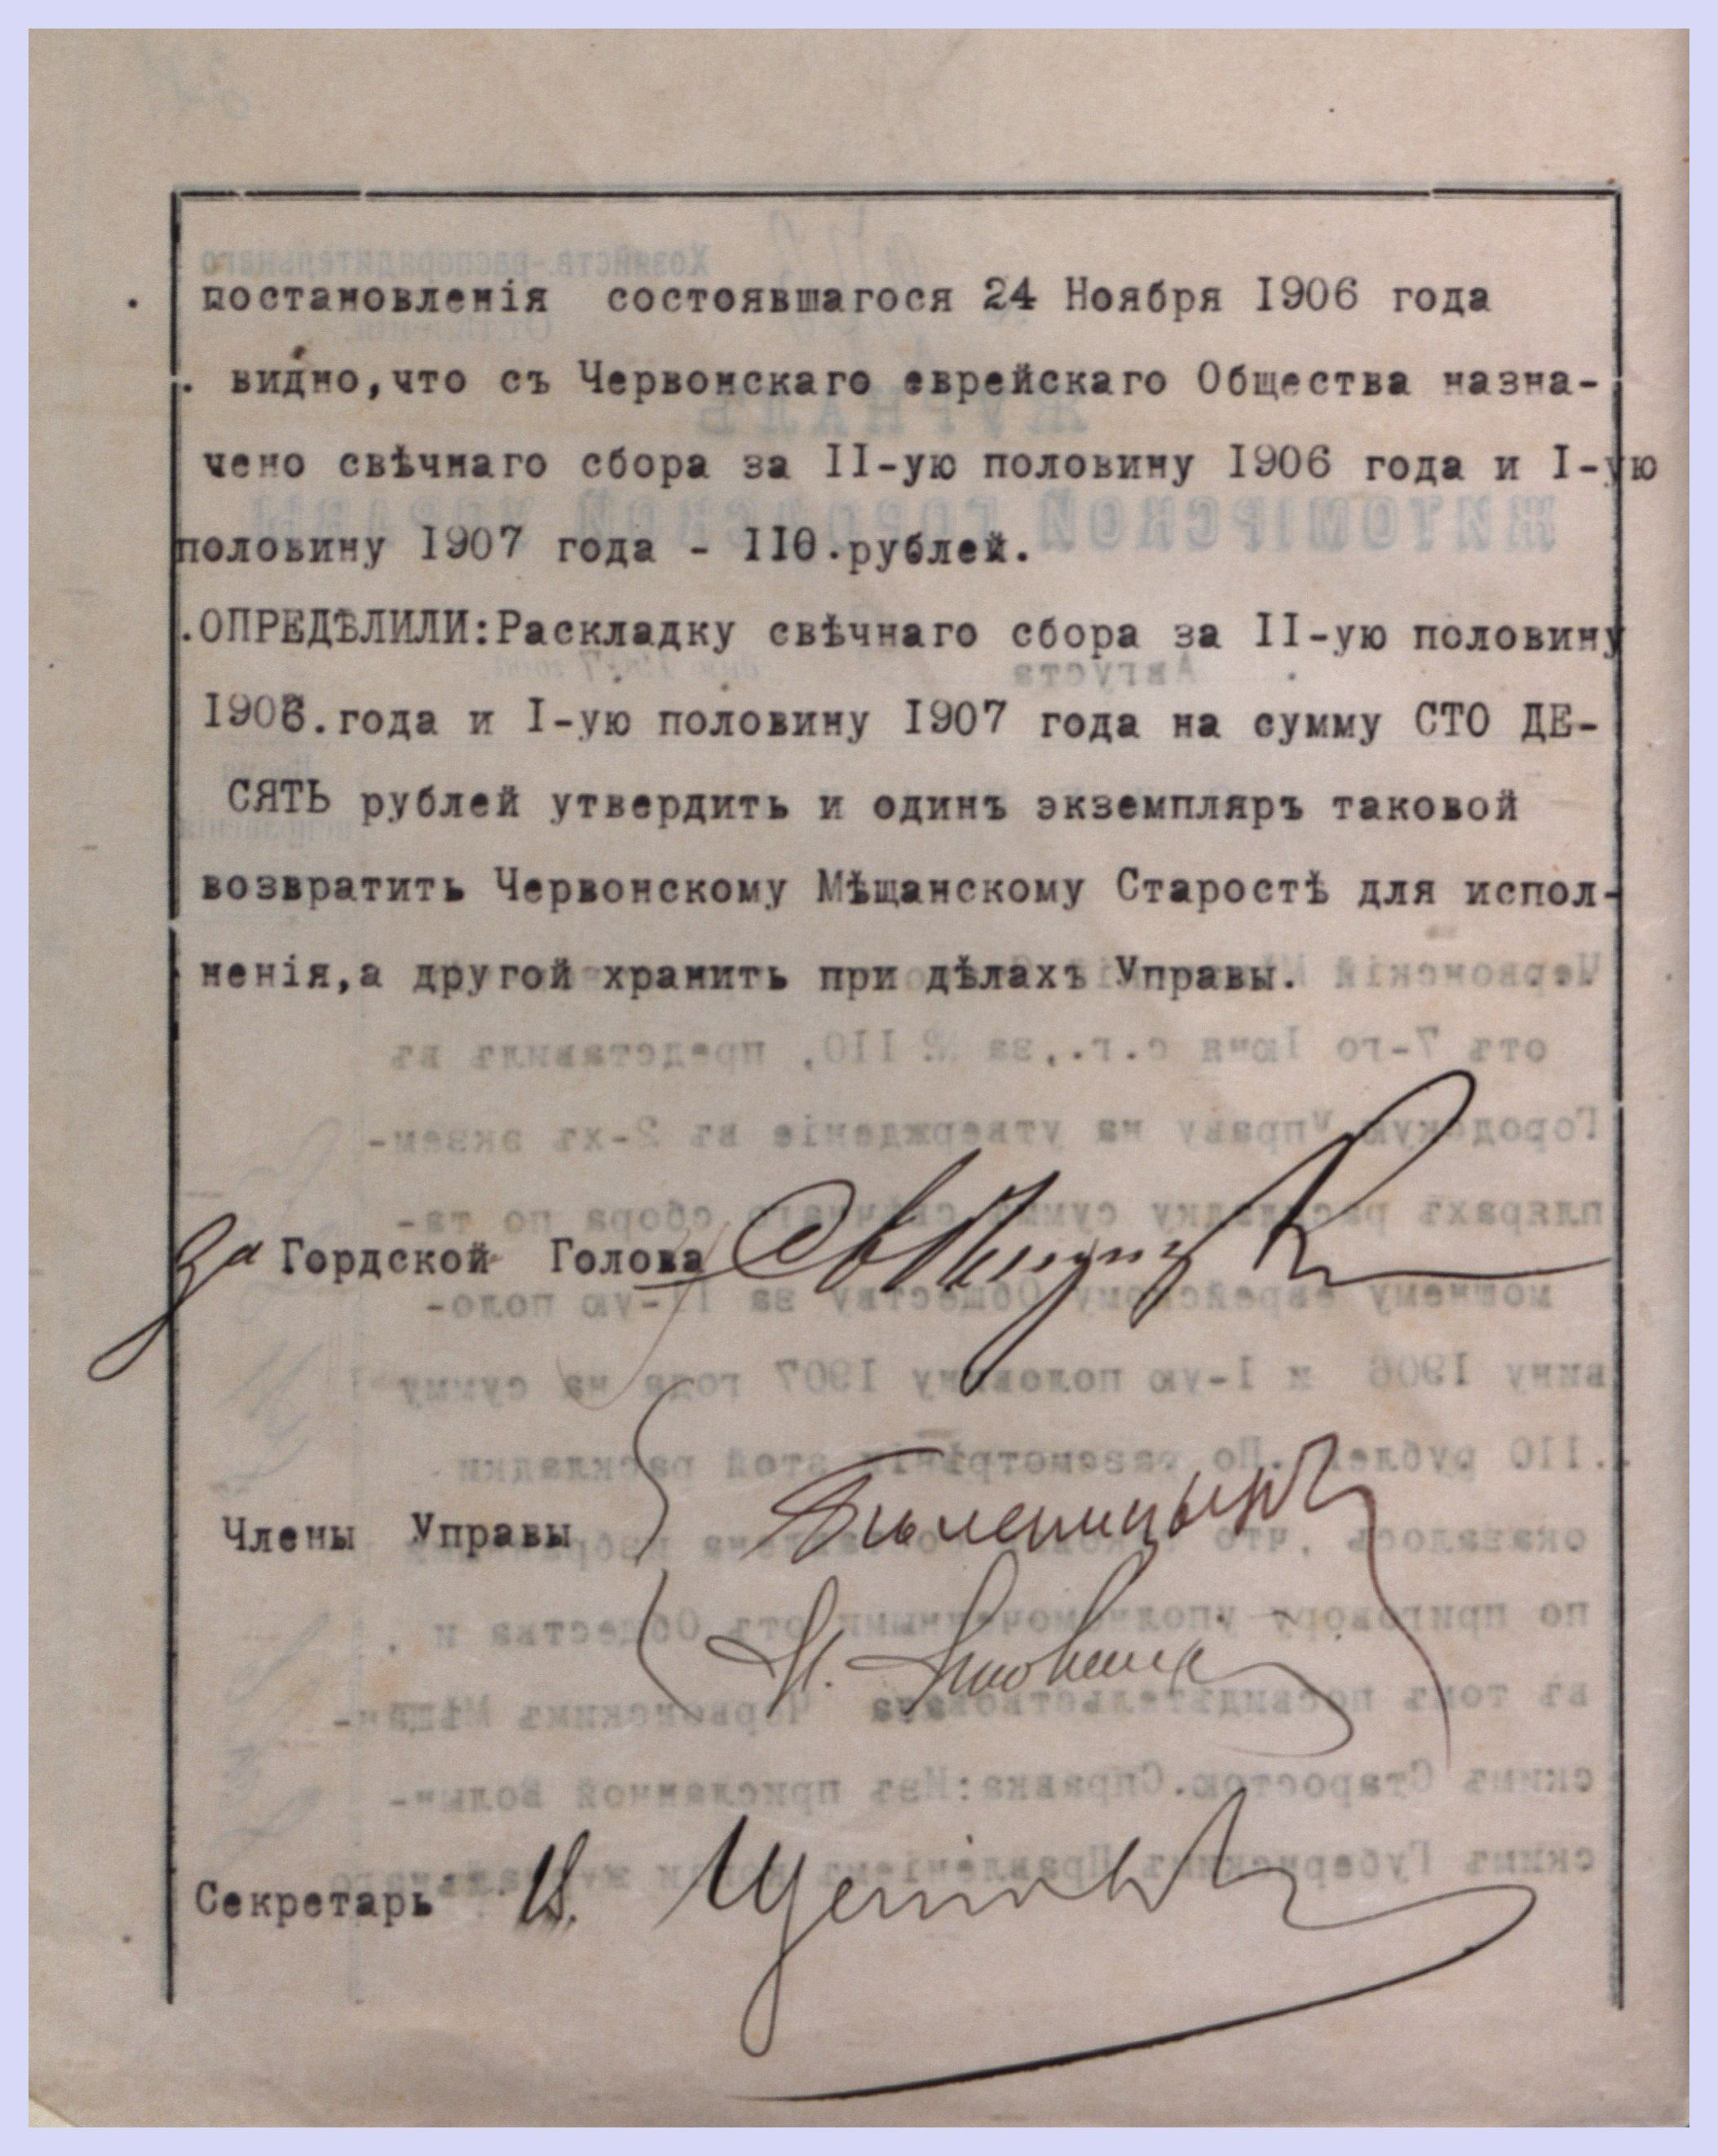 постановленія состоявшагося 24 Ноября 1906 года
. видно,что съ Червонскаго еврейскаго Общества назна-
чено свѣчнаго сбора за II-ую половину 1906 года и I-ую
половину 1907 года - 110.рублей.
.ОПРЕДѢЛИЛИ:Раскладку свѣчнаго сбора за II-ую половину
1906.года и I-ую половину 1907 года на сумму СТО ДЕ-
СЯТЬ рублей утвердить и одинъ экземпляръ таковой
возвратить Червонскому Мѣщанскому Старостѣ для испол-
ненія,а другой хранить при дѣлахъ Управы.
за Гордской Голова
Члены Управы
Секретарь